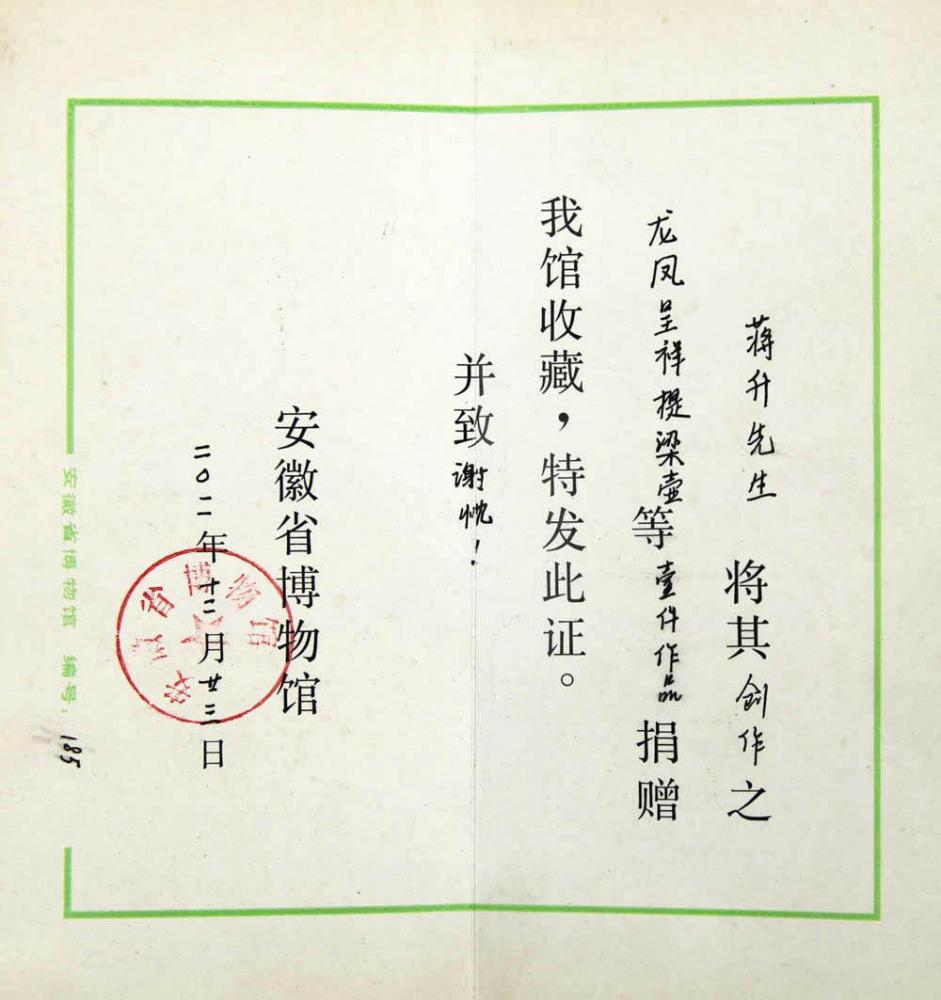 蒋升先生 将其创作之
龙凤呈祥提梁壶等壹件作品捐赠
我馆收藏，特发此证。
并致谢忱！
安徽省博物馆
二〇一一年十二月廿三日
安徽省博物馆
安徽省博物馆 编号：185